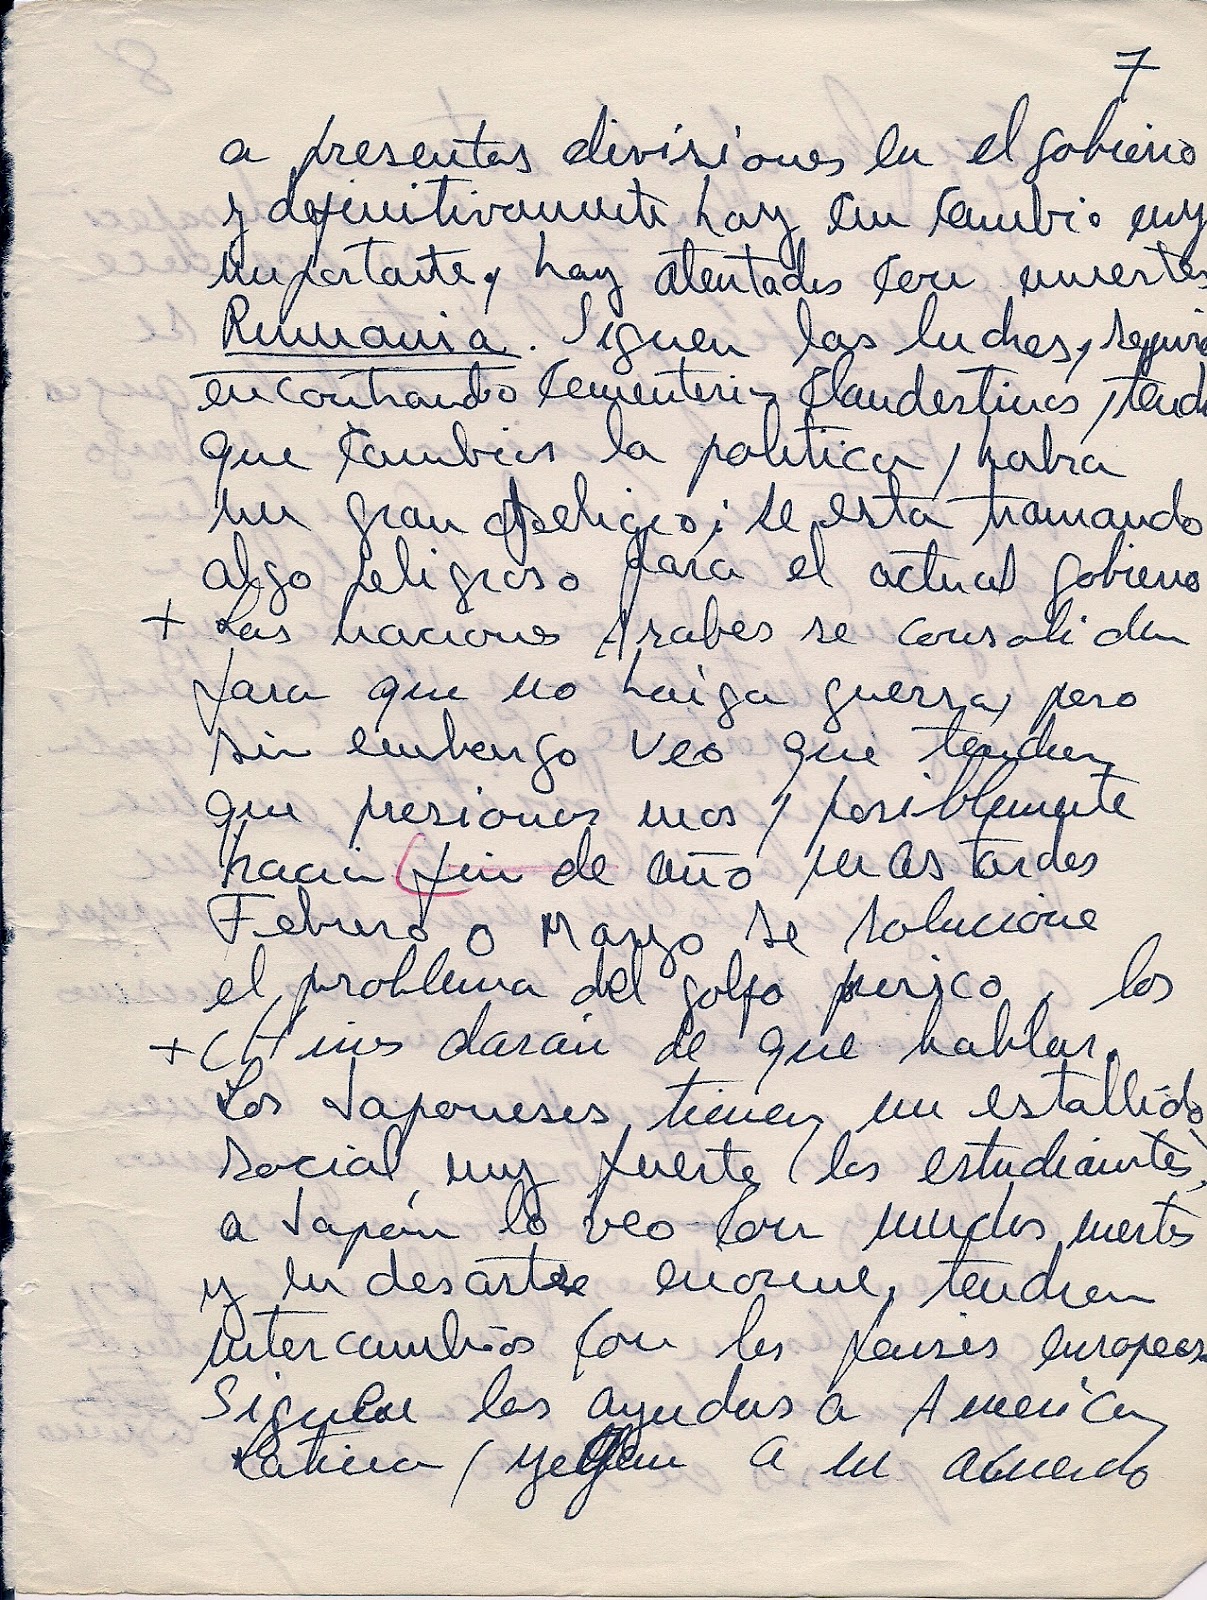 7
a presentar divisiones en el gobierno
y definitivamente hay un cambio muy
importante, hay atentados con muertes
Rumania. Siguen las luchas, seguira
encontrando cementerios clandestinos, tendr
que cambiar la politica, habra
un gran peligro; se esta tramando
algo peligroso para el actual gobierno
+ Las naciones Arabes se consolidan
para que no haiga guerra, pero
sin embargo veo que tendran
que presionar mas, posiblemente
hacia fin de año mas tardar
Febrero o Marzo se solucione
el problema del golfo persico, los
+ CHinos darán de que hablar.
Los Japoneses tienen un estallido
social muy fuerte (los estudiantes)
a Japón lo veo con muchas muertes
y un desastre enorme, tendran
intercambios con los paises europeos.
Siguen las ayudas a America
Latina, llegan a un acuerdo